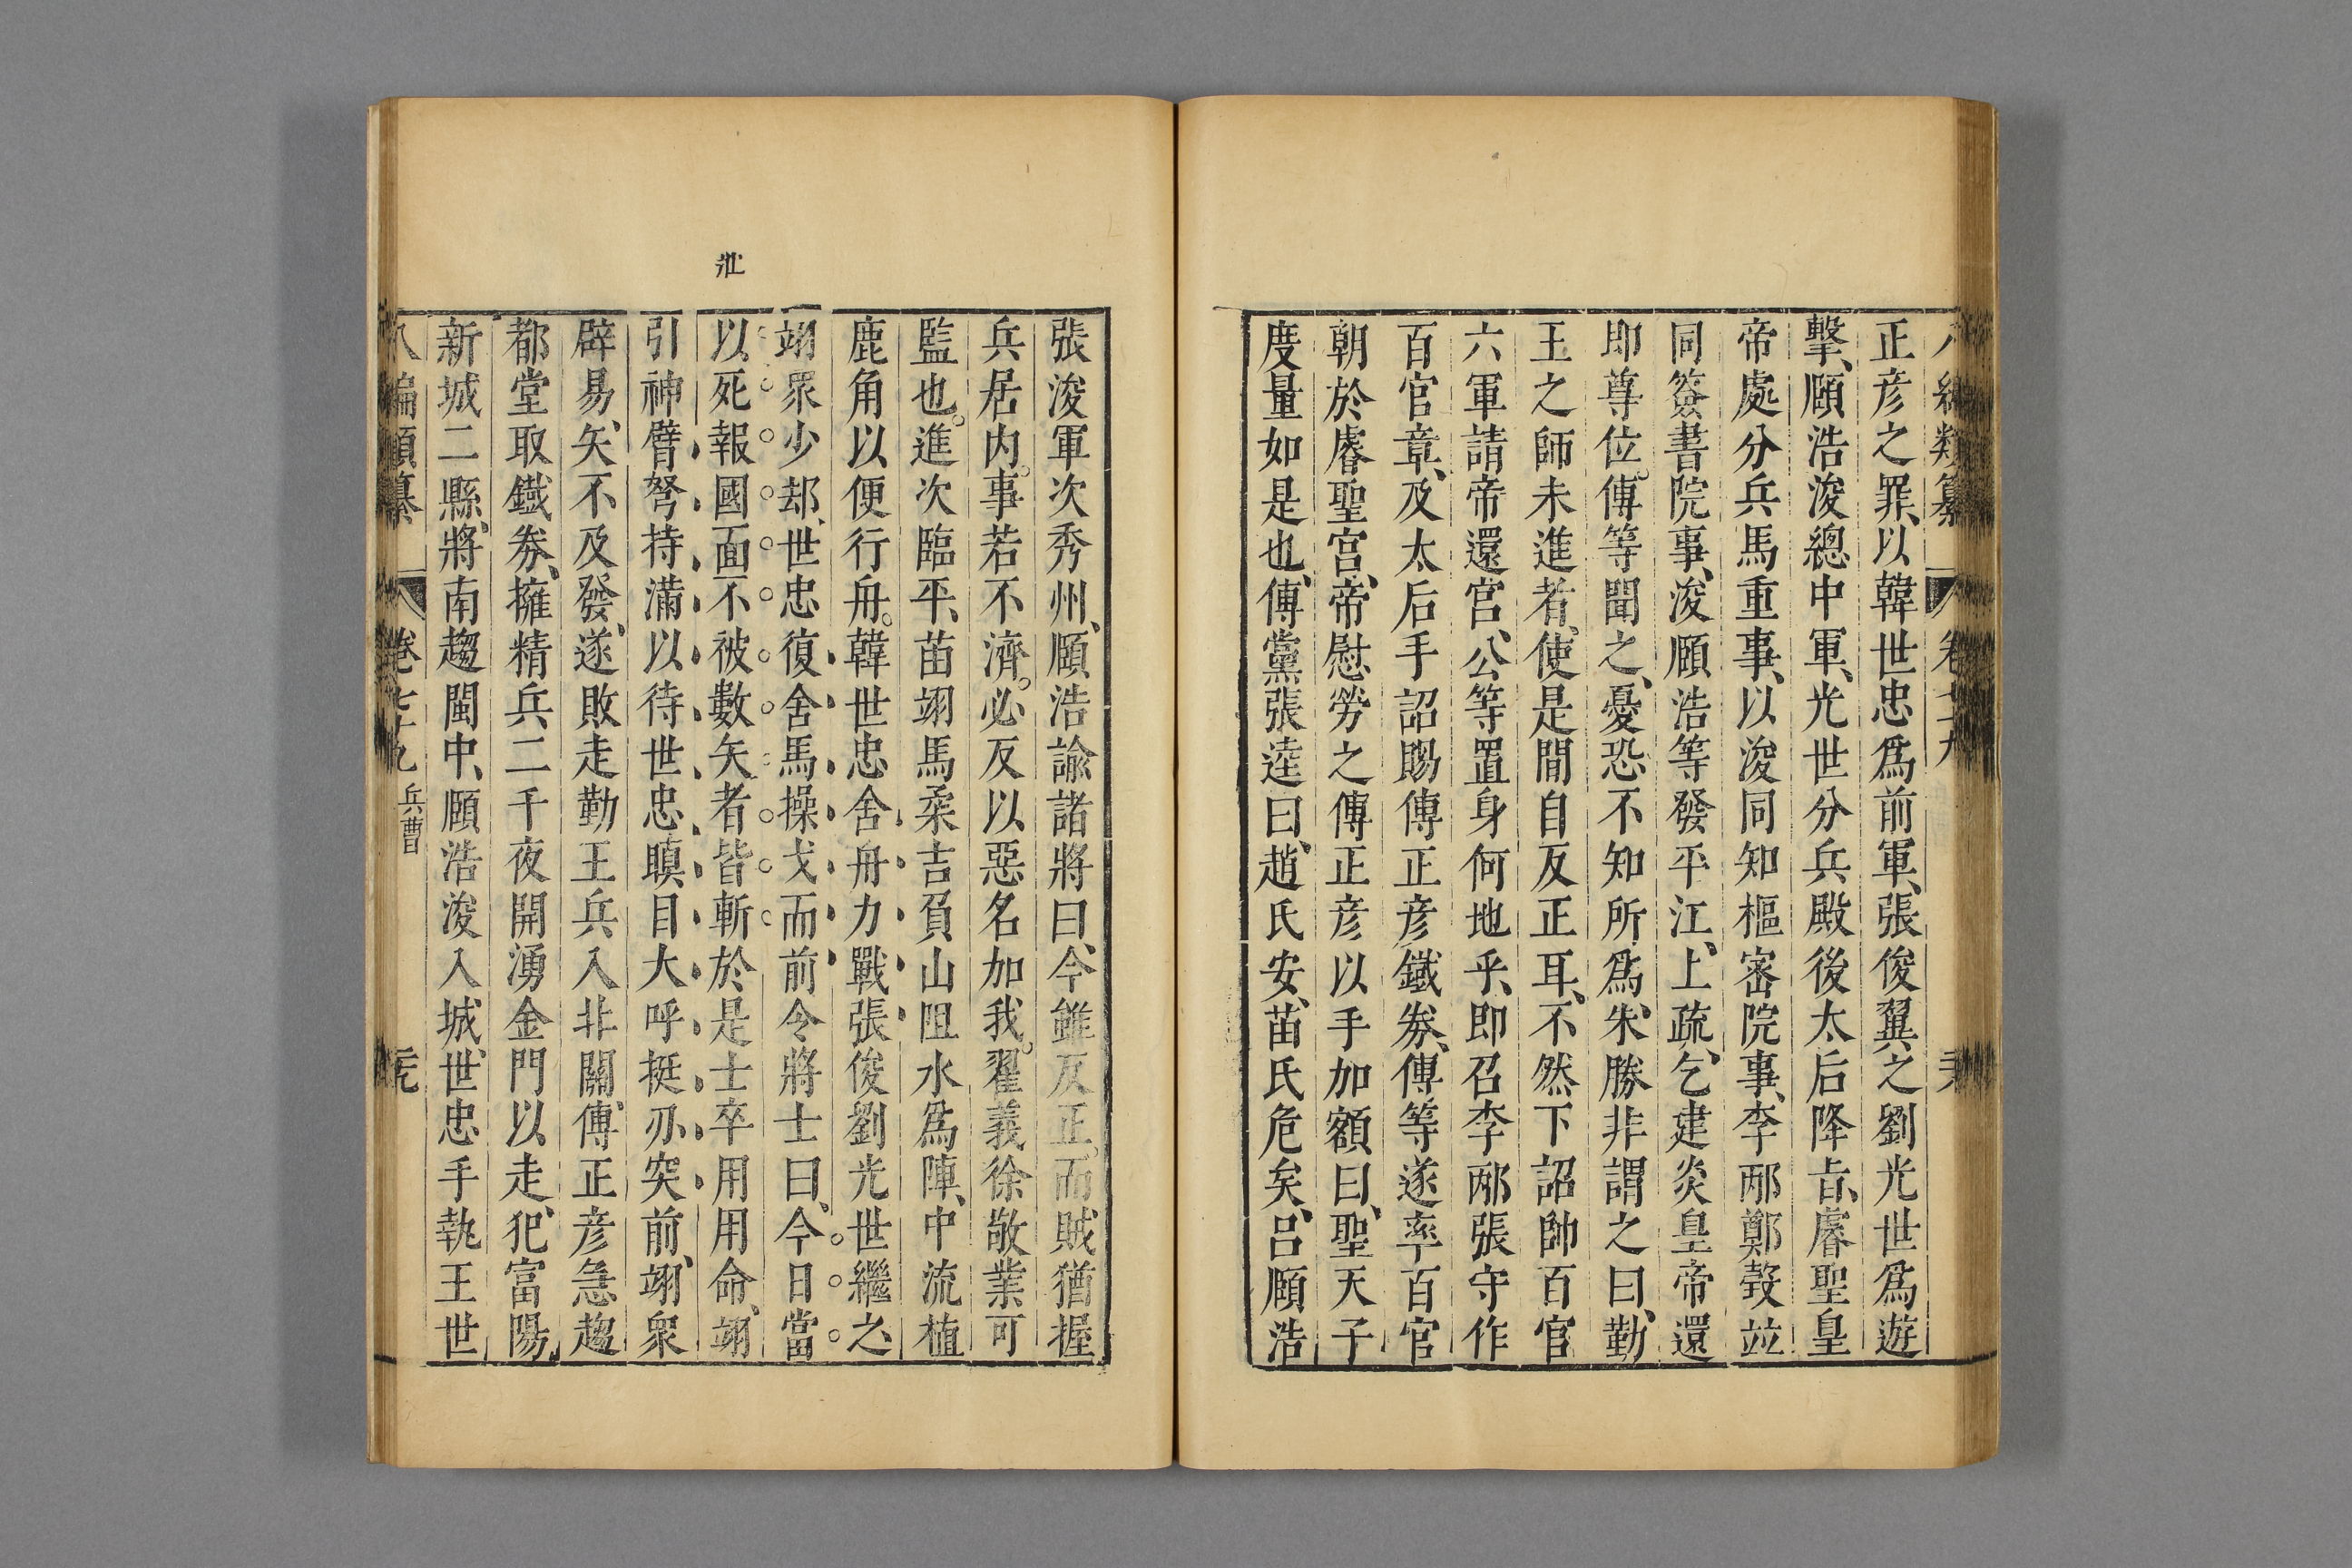 正彦之罪、以韓世忠爲前軍、張俊翼之、劉光世爲遊
擊、頤浩浚總中軍、光世分兵殿後太后降旨、睿聖皇
帝處分兵馬重事、以浚同知樞密院事、李邴鄭瑴竝
同簽書院事、浚頤浩等發平江、上疏、乞建炎皇帝還
即尊位。傅等聞之、憂恐不知所爲、朱勝非謂之曰、勤
王之師未進者、使是間自反正耳、不然下詔帥百官
六軍請帝還宮、公等置身何地乎、即召李邴張守作
百官章、及太后手詔賜傅正彦鐵劵、傅等遂率百官
朝於睿聖宮、帝慰勞之傅正彦以手加額曰、聖天子
度量如是也、傅黨張逵曰、趙氏安、苗氏危矣、呂頤浩
張浚軍次秀州、頤浩諭諸將曰、今雖反正。而賊猶握
兵居內。事若不濟。必反以惡名加我。翟義徐敬業可
監也。進次臨平、苗翊馬柔吉負山阻水爲陣、中流植
鹿角以便行舟。韓世忠舍舟力戰張俊劉光世繼之
翊衆少却、世忠復舍馬操戈而前令將士曰、今日當
以死報國面不被數矢者皆斬於是士卒用用命、翊
引神臂弩持滿以待世忠瞋目大呼挺刃突前、翊衆
辟易、矢不及發、遂敗走勤王兵入北關、傅正彦急趨
都堂取鐵劵、擁精兵二千夜開湧金門以走、犯富陽
新城二縣、將南趨閩中、頤浩浚入城、世忠手執王世
卷七十九 兵曹